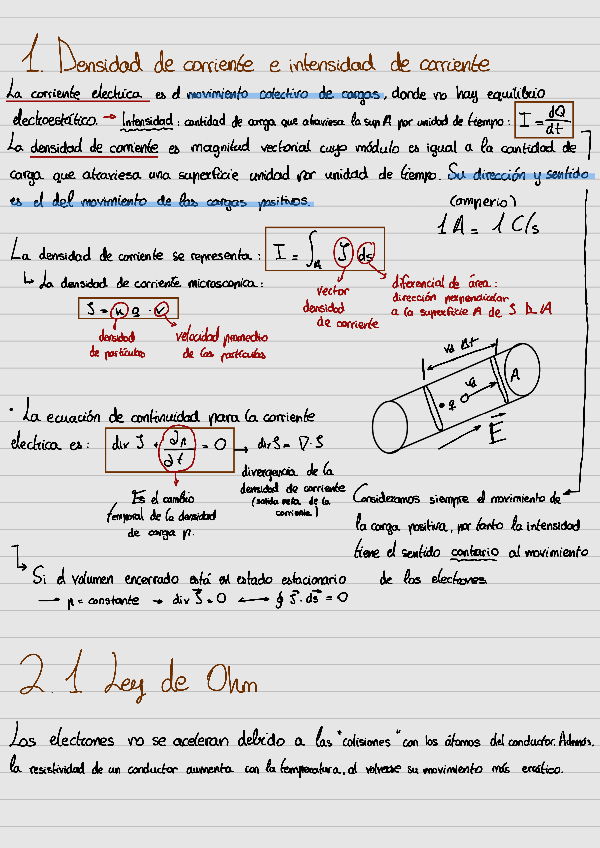 1. Densidad de corriente e intensidad de corriente
La corriente electrica es el movimiento colectivo de cargas, donde no hay equilibrio
electroestático. → Intensidad: cantidad de carga que atraviesa la sup A por unidad de tiempo: I = dQ/dt
La densidad de corriente es magnitud vectorial cuyo módulo es igual a la cantidad de
carga que atraviesa una superficie unidad por unidad de tiempo. Su dirección y sentido
es el del movimiento de las cargas positivas.
(amperio)
1 A = 1 C/s
La densidad de corriente se representa: I = ∫_A J ds
↳ La densidad de corriente microscopica:
vector
densidad
de corriente
diferencial de área:
dirección perpendicular
a la superficie A de
J = n q · v
densidad
de partículas
velocidad promedio
de las partículas
v_d Δt
v_d
A
q
E
· La ecuación de continuidad para la corriente
electrica es: div J + ∂ρ/∂t = 0 → div J = ∇·J
divergencia de la
densidad de corriente
(salida neta de la
corriente)
Es el cambio
temporal de la densidad
de carga ρ.
Consideramos siempre el movimiento de
la carga positiva, por tanto la intensidad
tiene el sentido contario al movimiento
de los electrones
↳ Si el volumen encerrado está en estado estacionario
→ ρ = constante → div J = 0 ↔ ∮ J · ds = 0
2.1 Ley de Ohm
Los electrones no se aceleran debido a las "colisiones" con los átomos del conductor. Además,
la resistividad de un conductor aumenta con la temperatura, al volverse su movimiento más errático.